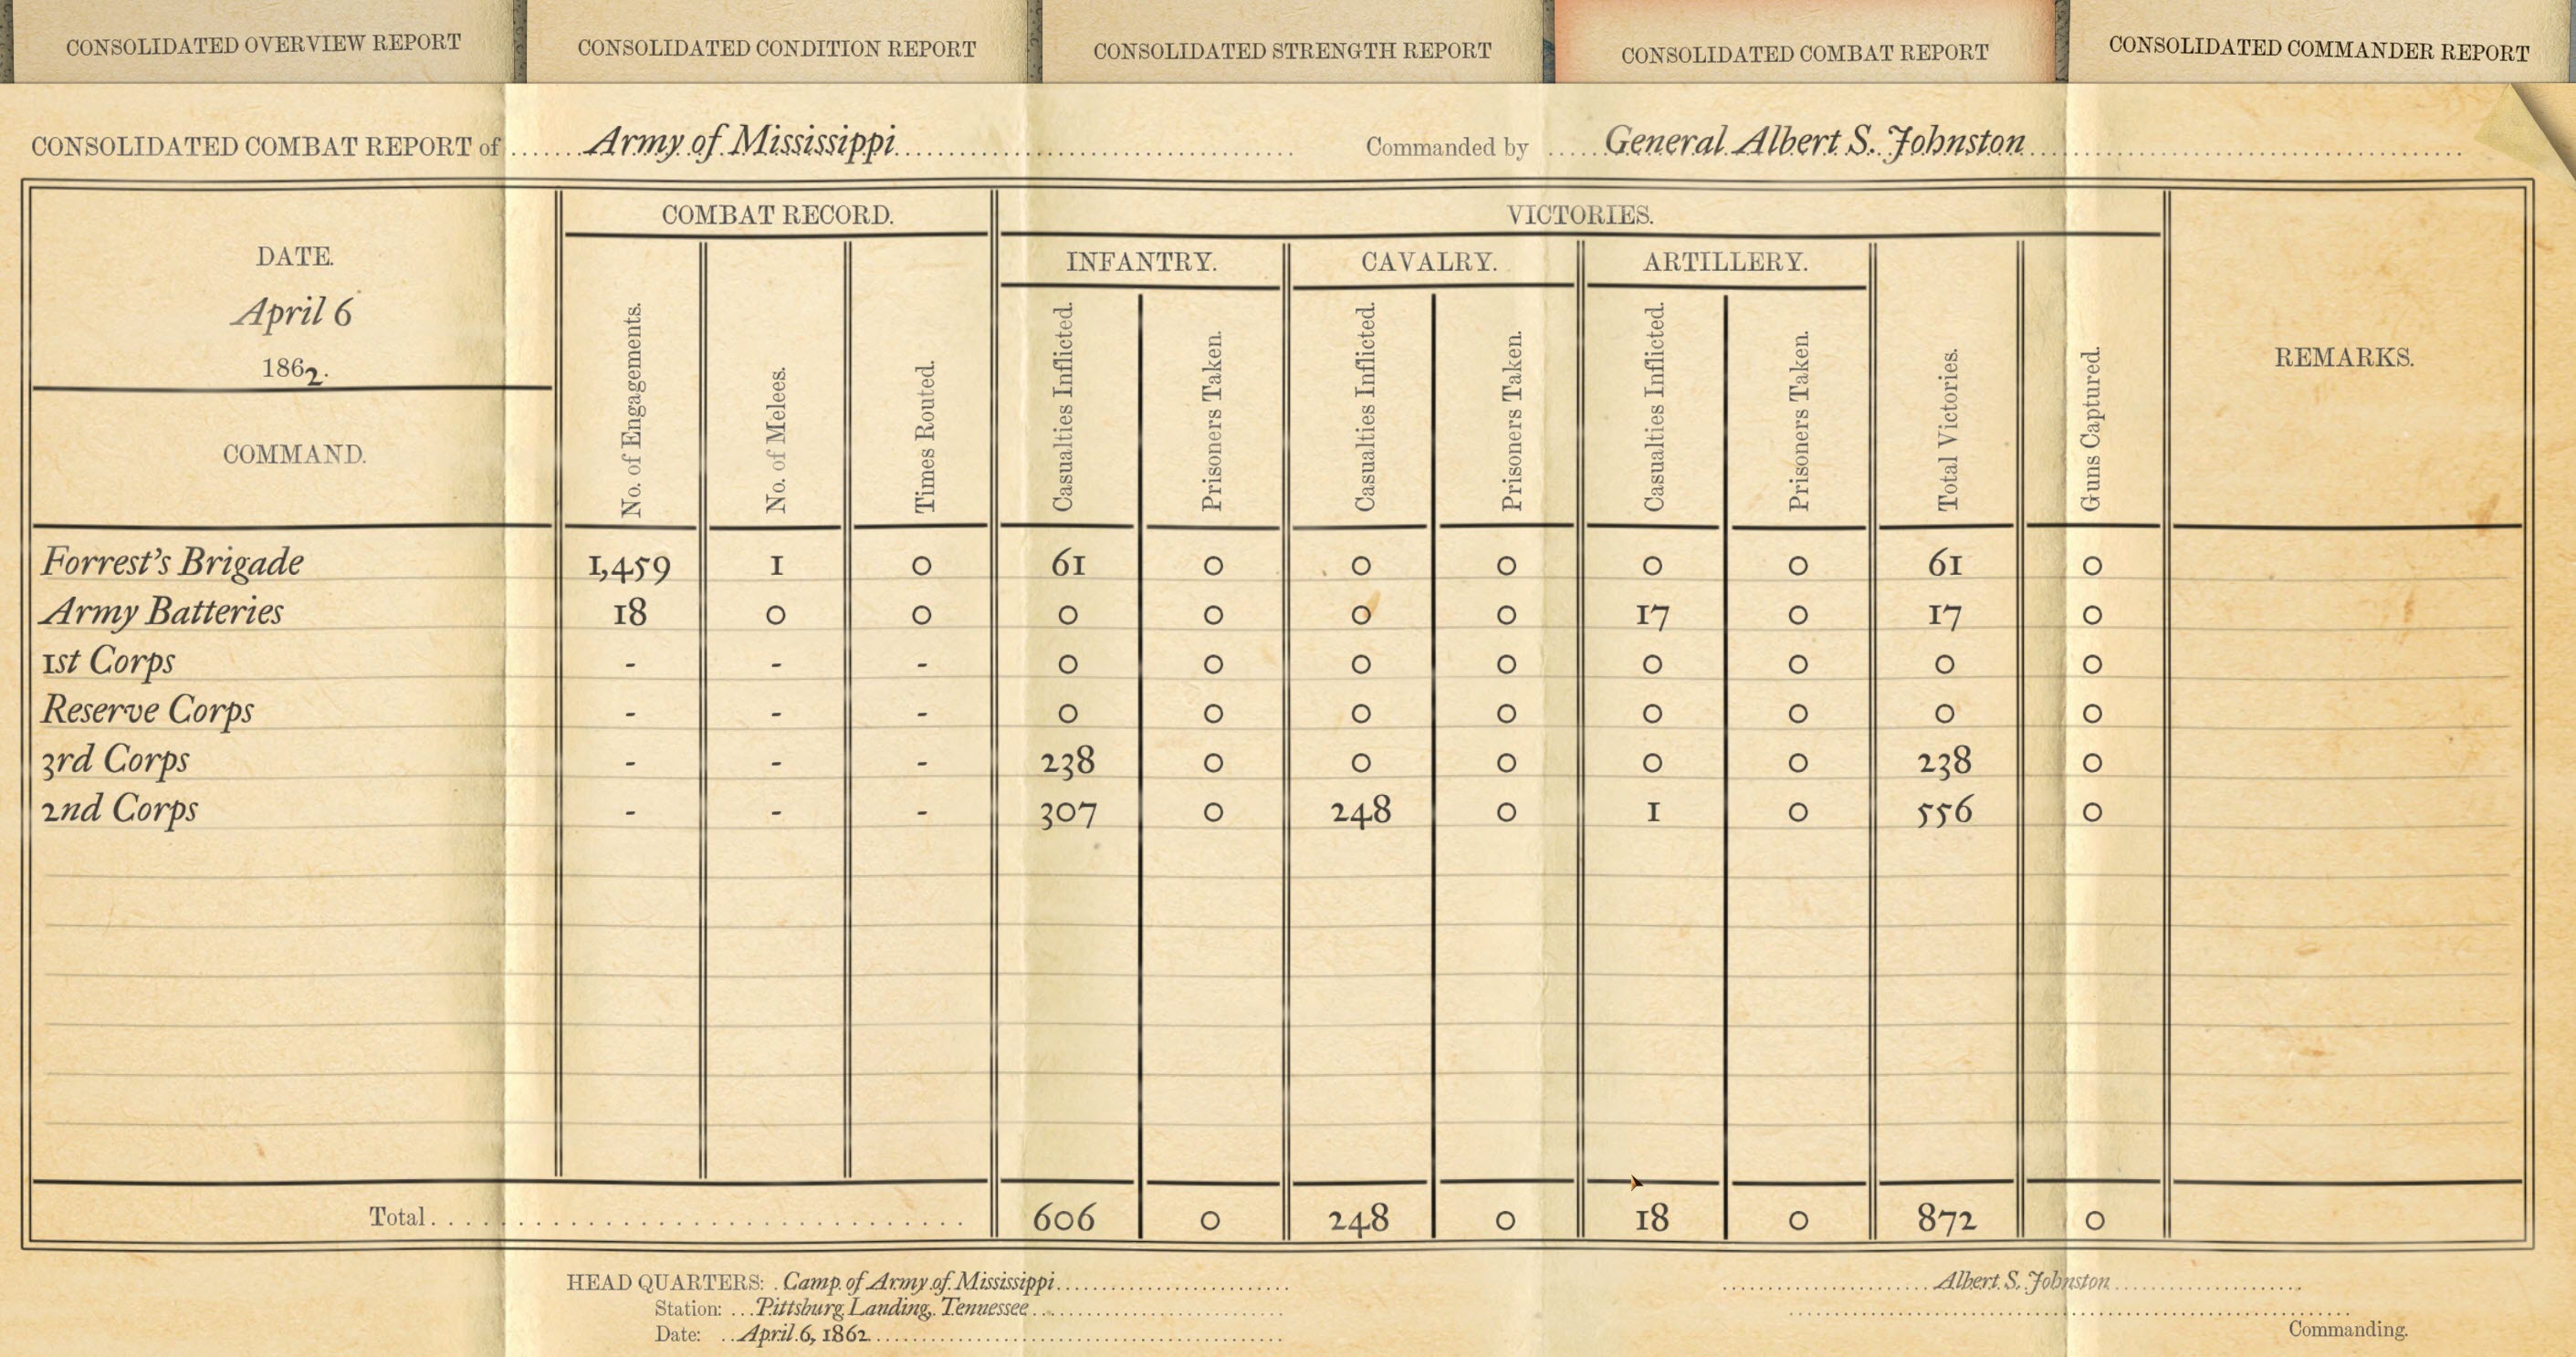 CONSOLIDATED OVERVIEW REPORT
CONSOLIDATED CONDITION REPORT
CONSOLIDATED STRENGTH REPORT
CONSOLIDATED COMBAT REPORT
CONSOLIDATED COMMANDER REPORT
CONSOLIDATED COMBAT REPORT of ...... Army of Mississippi
Commanded by ..... General Albert S. Johnston
DATE.
April 6
1862.
COMMAND.
COMBAT RECORD.
No. of Engagements.
No. of Melees.
Times Routed.
VICTORIES.
INFANTRY.
Casualties Inflicted.
Prisoners Taken.
CAVALRY.
Casualties Inflicted.
Prisoners Taken.
ARTILLERY.
Casualties Inflicted.
Prisoners Taken.
Total Victories.
Guns Captured.
REMARKS.
Forrest's Brigade 1,459 1 0 61 0 0 0 0 0 61 0
Army Batteries 18 0 0 0 0 0 0 17 0 17 0
1st Corps - - - 0 0 0 0 0 0 0 0
Reserve Corps - - - 0 0 0 0 0 0 0 0
3rd Corps - - - 238 0 0 0 0 0 238 0
2nd Corps - - - 307 0 248 0 1 0 556 0
Total 606 0 248 0 18 0 872 0
HEAD QUARTERS: Camp of Army of Mississippi
Station: Pittsburg Landing, Tennessee
Date: April 6, 1862
Albert S. Johnston
Commanding.